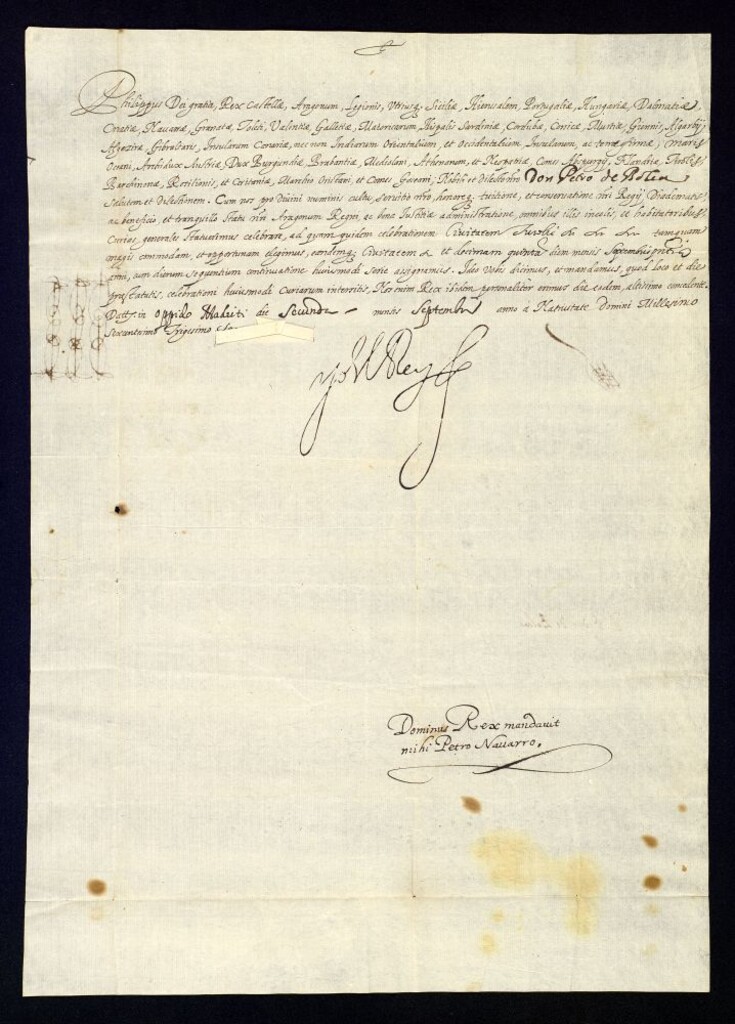 Philippus Dei gratia, Rex Castellæ, Aragonum, Legionis, Vtriusq. Siciliæ, Hierusalem, Portugaliæ, Hungariæ, Dalmatiæ,
Croatiæ, Nauarræ, Granatæ, Toleti, Valentiæ, Galletiæ, Maioricarum, Hispalis Sardiniæ, Cordubæ, Corsicæ, Murtiæ, Giennis, Algarbij
Algeziræ, Gibraltaris, Insularum Canariæ, nec non Indiarum Orientalium, et Occidentalium, Insularum, ac terræ firmæ, maris
Oceani, Archidux Austriæ, Dux Burgundiæ Brabantiæ, Mediolani, Athenarum, et Neopatriæ, Comes Abspurgij, Flandriæ, Tirolis,
Barchinonæ, Rossilionis, et Ceritaniæ, Marchio Oristani, et Comes Goceani; Nobili et Dilecto nro Don Petro de
Salutem et Dilectionem. Cum nos pro Divini numinis cultu, seruitio nro, honoreq. tuitione, et conseruatione nri Regij Diadematis,
ac beneficio et tranquillo statu nri Aragonum Regni, ac bona Iustitiæ administratione, omnibus illis incolis, et habitatoribus
Curias generales statuerimus celebrare, ad quarum quidem celebrationem Ciuitatem tamquam
magis commodam, et opportunam elegimus, eandemq. Ciuitatem et decimam quintam diem mensis Septembris
anni, cum dierum sequentium continuatione huiusmodi serie assignamus. Ideo Vobis dicimus, et mandamus, quod loco et die
præstatutis, celebrationi huiusmodi Curiarum intersitis, Nos enim Rex ibidem personaliter erimus die eadem, altissimo concedente.
Datt. in oppido Madriti die Secunda mensis Septembris anno a Natiuitate Domini Millesimo
Sexcentesimo Trigesimo
Yo el Rey
Dominus Rex mandauit
mihi Petro Nauarro.